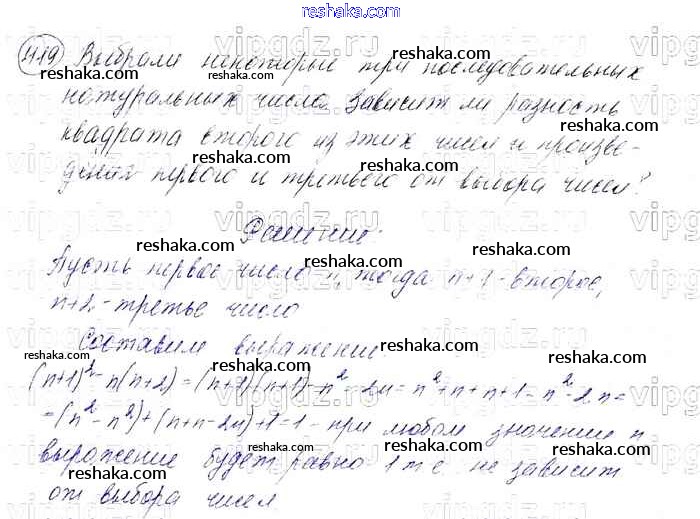 reshaka.com
419 Выбрали некоторые три последовательных
натуральных числа. Зависит ли разность
квадрата второго из этих чисел и произве-
дения первого и третьего от выбора чисел?
Решение:
Пусть первое число n, тогда n+1 - второе,
n+2 - третье число
Составим выражение:
(n+1)² - n(n+2) = (n+1)(n+1) - n² - 2n = n² + n + n + 1 - n² - 2n =
= (n² - n²) + (n + n - 2n) + 1 = 1 - при любом значении n
выражение будет равно 1 т.е. не зависит
от выбора чисел